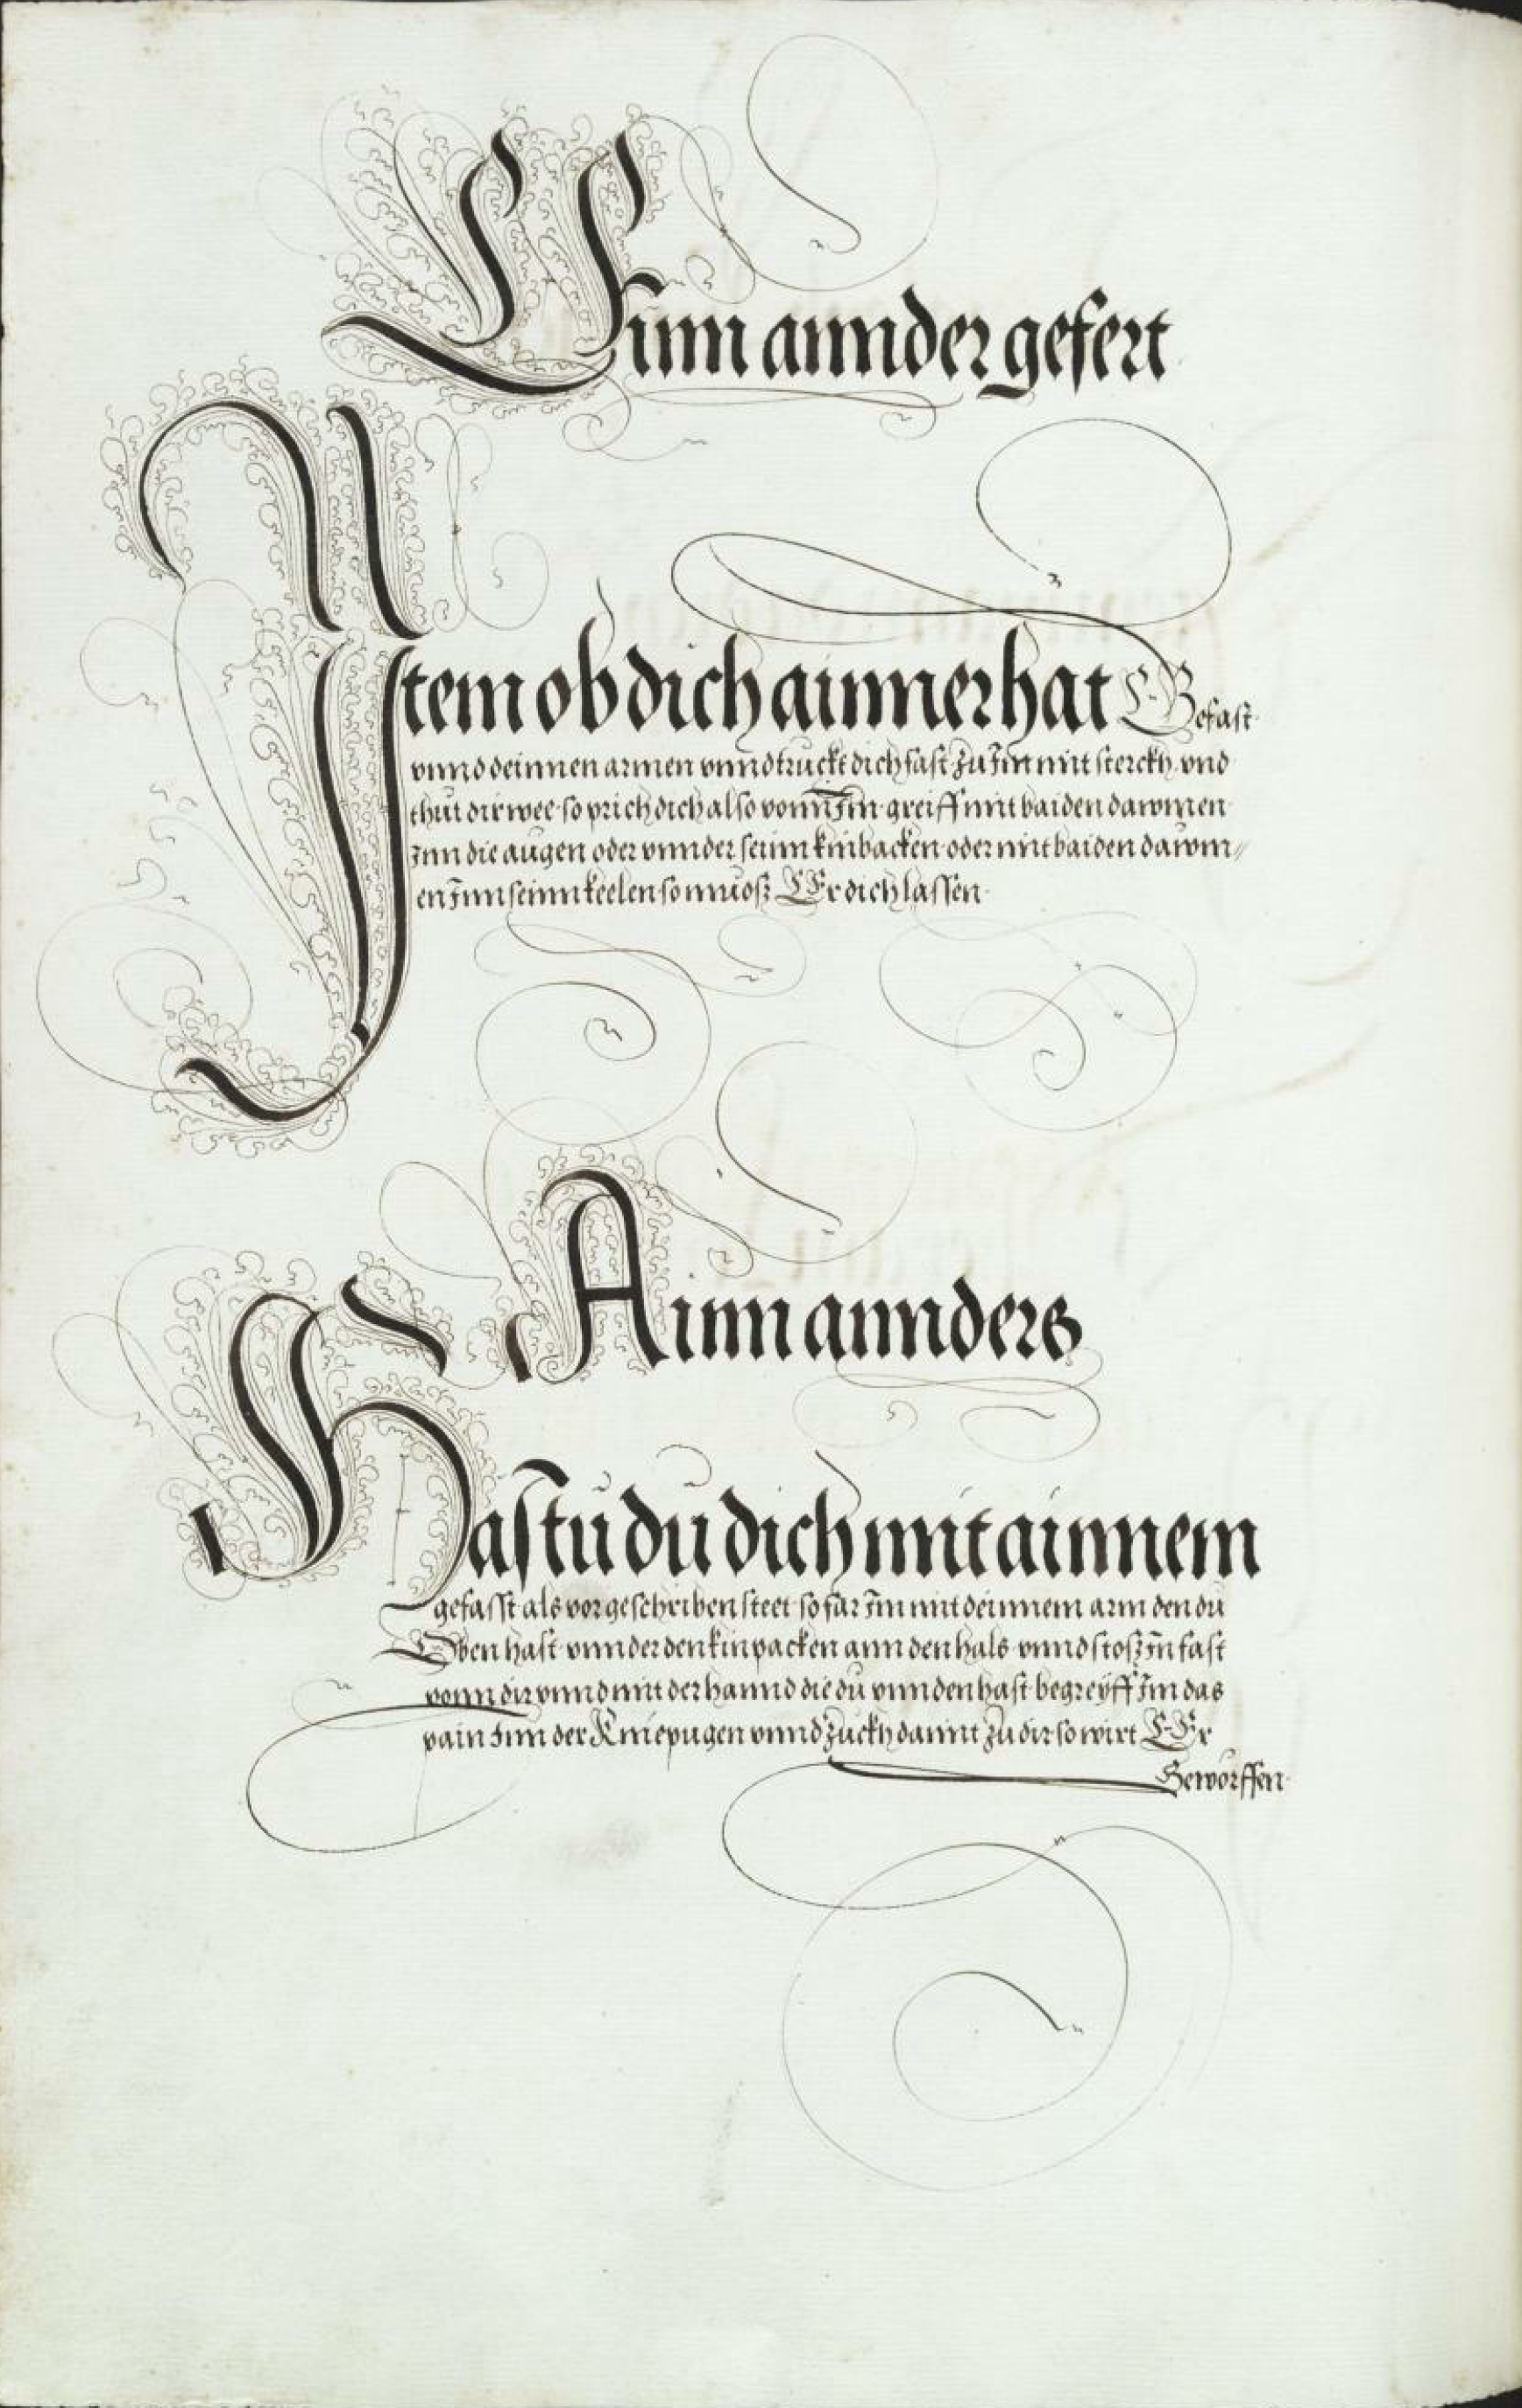 Einn annder gefert
Item ob dich ainner hat Gefast
vnnd deinnen armen vnnd truckt dich fast zu Im mit sterckh vnd
thut dir wee so prich dich also vonn Im greiff mit baiden dawmen
Inn die augen oder vnnder seinn kinbacken oder mit baiden dawm〃
en Inn seinn keelen so muosz Er dich lassen
Ainn annders
Hastu du dich mit ainnem
gefasst als vor geschriben steet so far Im mit deinnem arm den du
Oben hast vnnder den kinpacken ann den hals vnnd stosz In fast
vonn dir vnnd mit der hannd die du vnnden hast begreyff Im das
pain Inn der Kniepugen vnnd zuckh damit zu dir so wirt Er
Geworffen